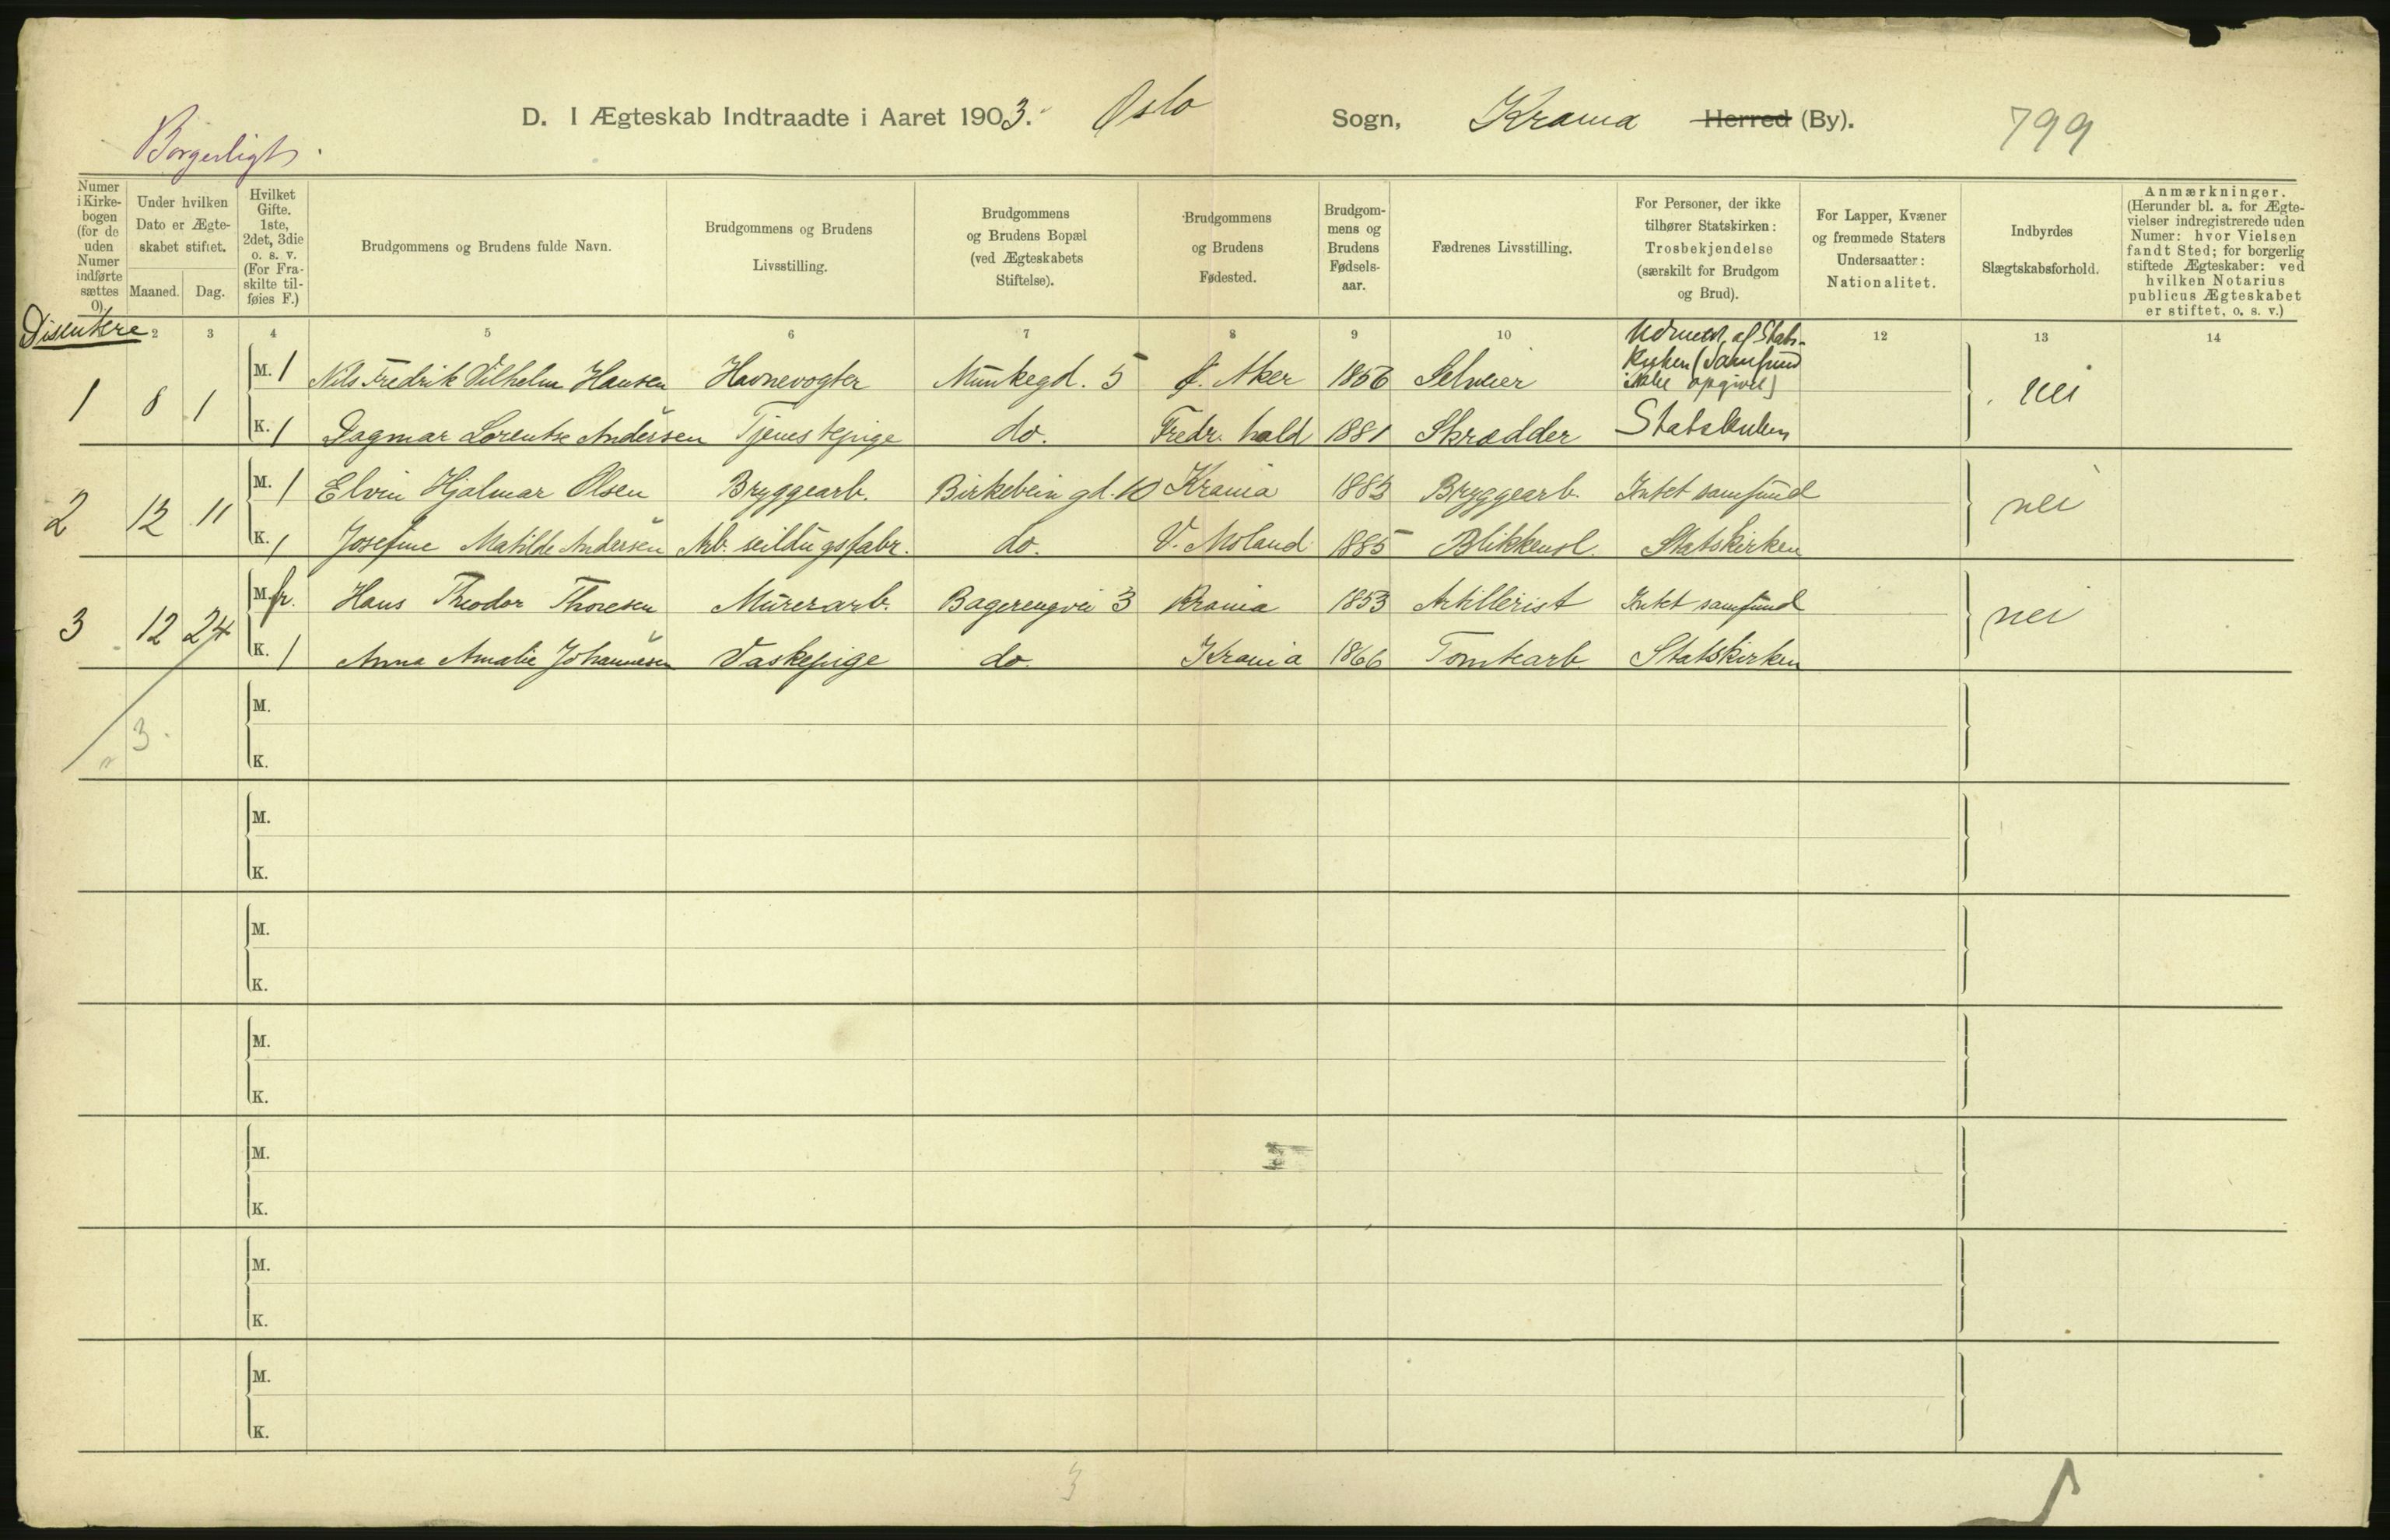 D. I Ægteskab Indtraadte i Aaret 1903. Oslo Sogn, Krania Herred (By). 799
Borgerligt
Numer i Kirkebogen (for de uden Numer indførte sættes 0).
Under hvilken Dato er Ægteskabet stiftet.
Maaned. Dag.
Hvilket Gifte. 1ste, 2det, 3die o. s. v. (For Fraskilte tilføies F.)
Brudgommens og Brudens fulde Navn.
Brudgommens og Brudens Livsstilling.
Brudgommens og Brudens Bopæl (ved Ægteskabets Stiftelse).
Brudgommens og Brudens Fødested.
Brudgommens og Brudens Fødselsaar.
Fædrenes Livsstilling.
For Personer, der ikke tilhører Statskirken: Trosbekjendelse (særskilt for Brudgom og Brud).
For Lapper, Kvæner og fremmede Staters Undersaatter: Nationalitet.
Indbyrdes Slægtskabsforhold.
Anmærkninger. (Herunder bl. a. for Ægtevielser indregistrerede uden Numer: hvor Vielsen fandt Sted; for borgerlig stiftede Ægteskaber: ved hvilken Notarius publicus Ægteskabet er stiftet, o. s. v.)
Disentere 2 3 4 5 6 7 8 9 10 12 13 14
1 8 1 M. 1 Nils Fredrik Vilhelm Hansen Havnevogter Munkegd. 5 Ø. Aker 1856 Selveier Udmeldt af Statskirken (Samfund ikke opgivet) nei
K. 1 Dagmar Lorentze Andersen Tjenestepige do. Fredr. hald 1881 Skrædder Statskirken
2 12 11 M. 1 Elvin Hjalmar Olsen Bryggearb. Birkebein gd. 10 Krania 1883 Bryggearb. Intet samfund nei
K. 1 Josefine Matilde Andersen Arb. seildugsfabr. do. V. Moland 1885 Blikkensl. Statskirken
3 12 24 M. fr. Hans Theodor Thoresen Murerarb. Bagerengvei 3 Krania 1853 Artillerist Intet samfund nei
K. 1 Anna Amalie Johannesen Vaskepige do. Krania 1866 Tomtearb. Statskirken
3.
M.
K.
M.
K.
M.
K.
M.
K.
M.
K.
M.
K.
M.
K.
3